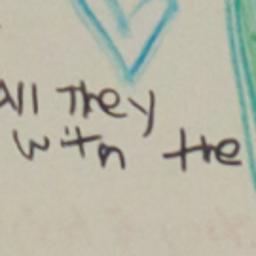 all They
with the